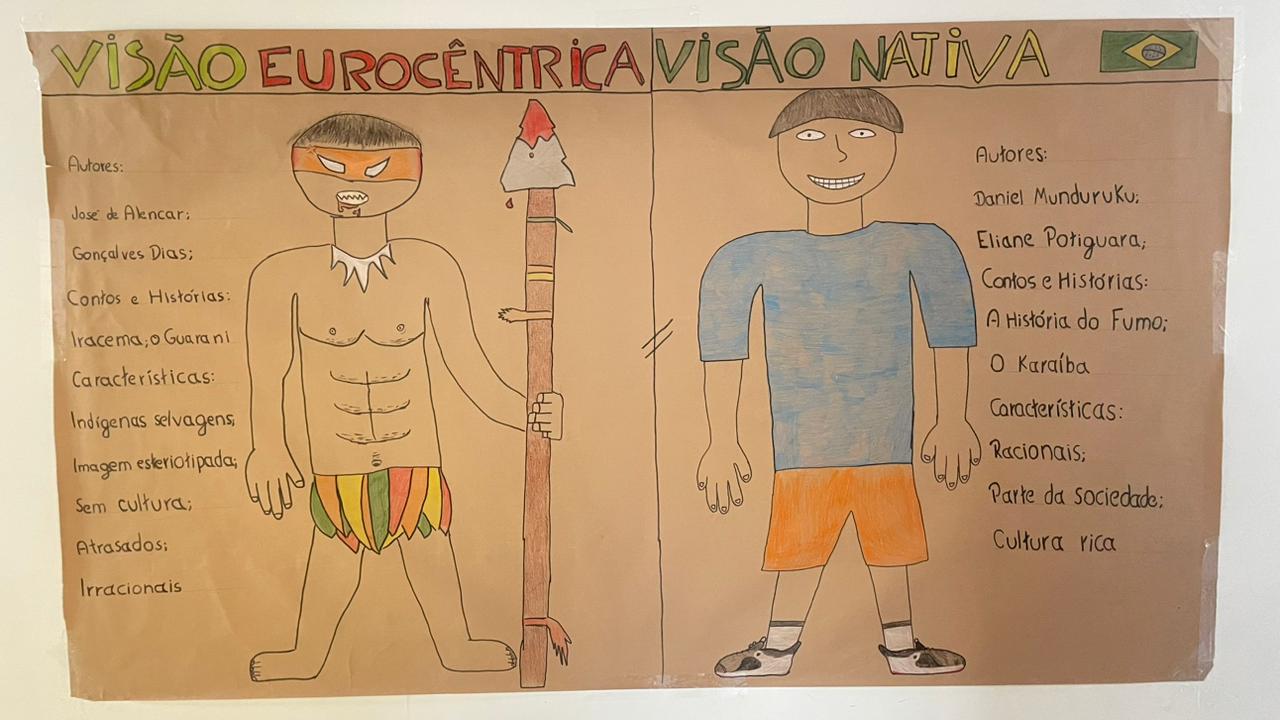 VISÃO EUROCÊNTRICA
Autores:
José de Alencar;
Gonçalves Dias;
Contos e Histórias:
Iracema; o Guarani
Características:
Indígenas selvagens;
Imagem esteriotipada;
Sem cultura;
Atrasados;
Irracionais
VISÃO NATIVA
Autores:
Daniel Munduruku;
Eliane Potiguara;
Contos e Histórias:
A História do Fumo;
O Karaíba
Características:
Racionais;
Parte da sociedade;
Cultura rica